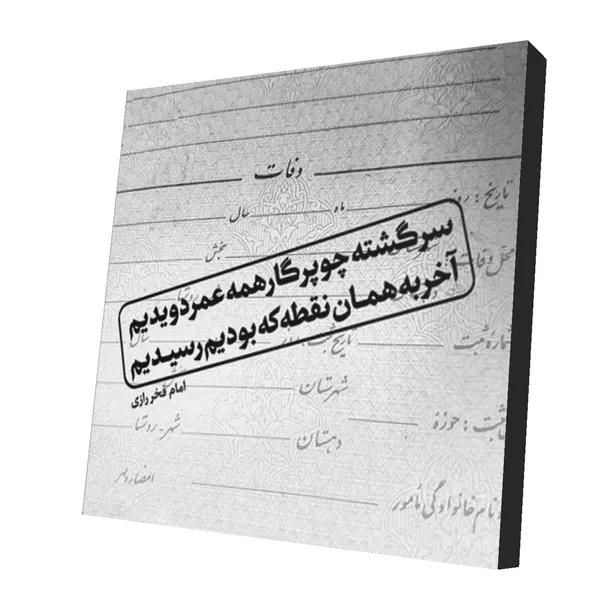 وفات
تاریخ : روز ماه سال
محل وفات بخش
سرگشته چو پرگار همه عمر دویدیم
آخر به همان نقطه که بودیم رسیدیم
امام فخر رازی
شماره ثبت تاریخ ثبت سال
ثبت : حوزه شهرستان
دهستان شهر - روستا
نام خانوادگی مأمور امضاء و مهر